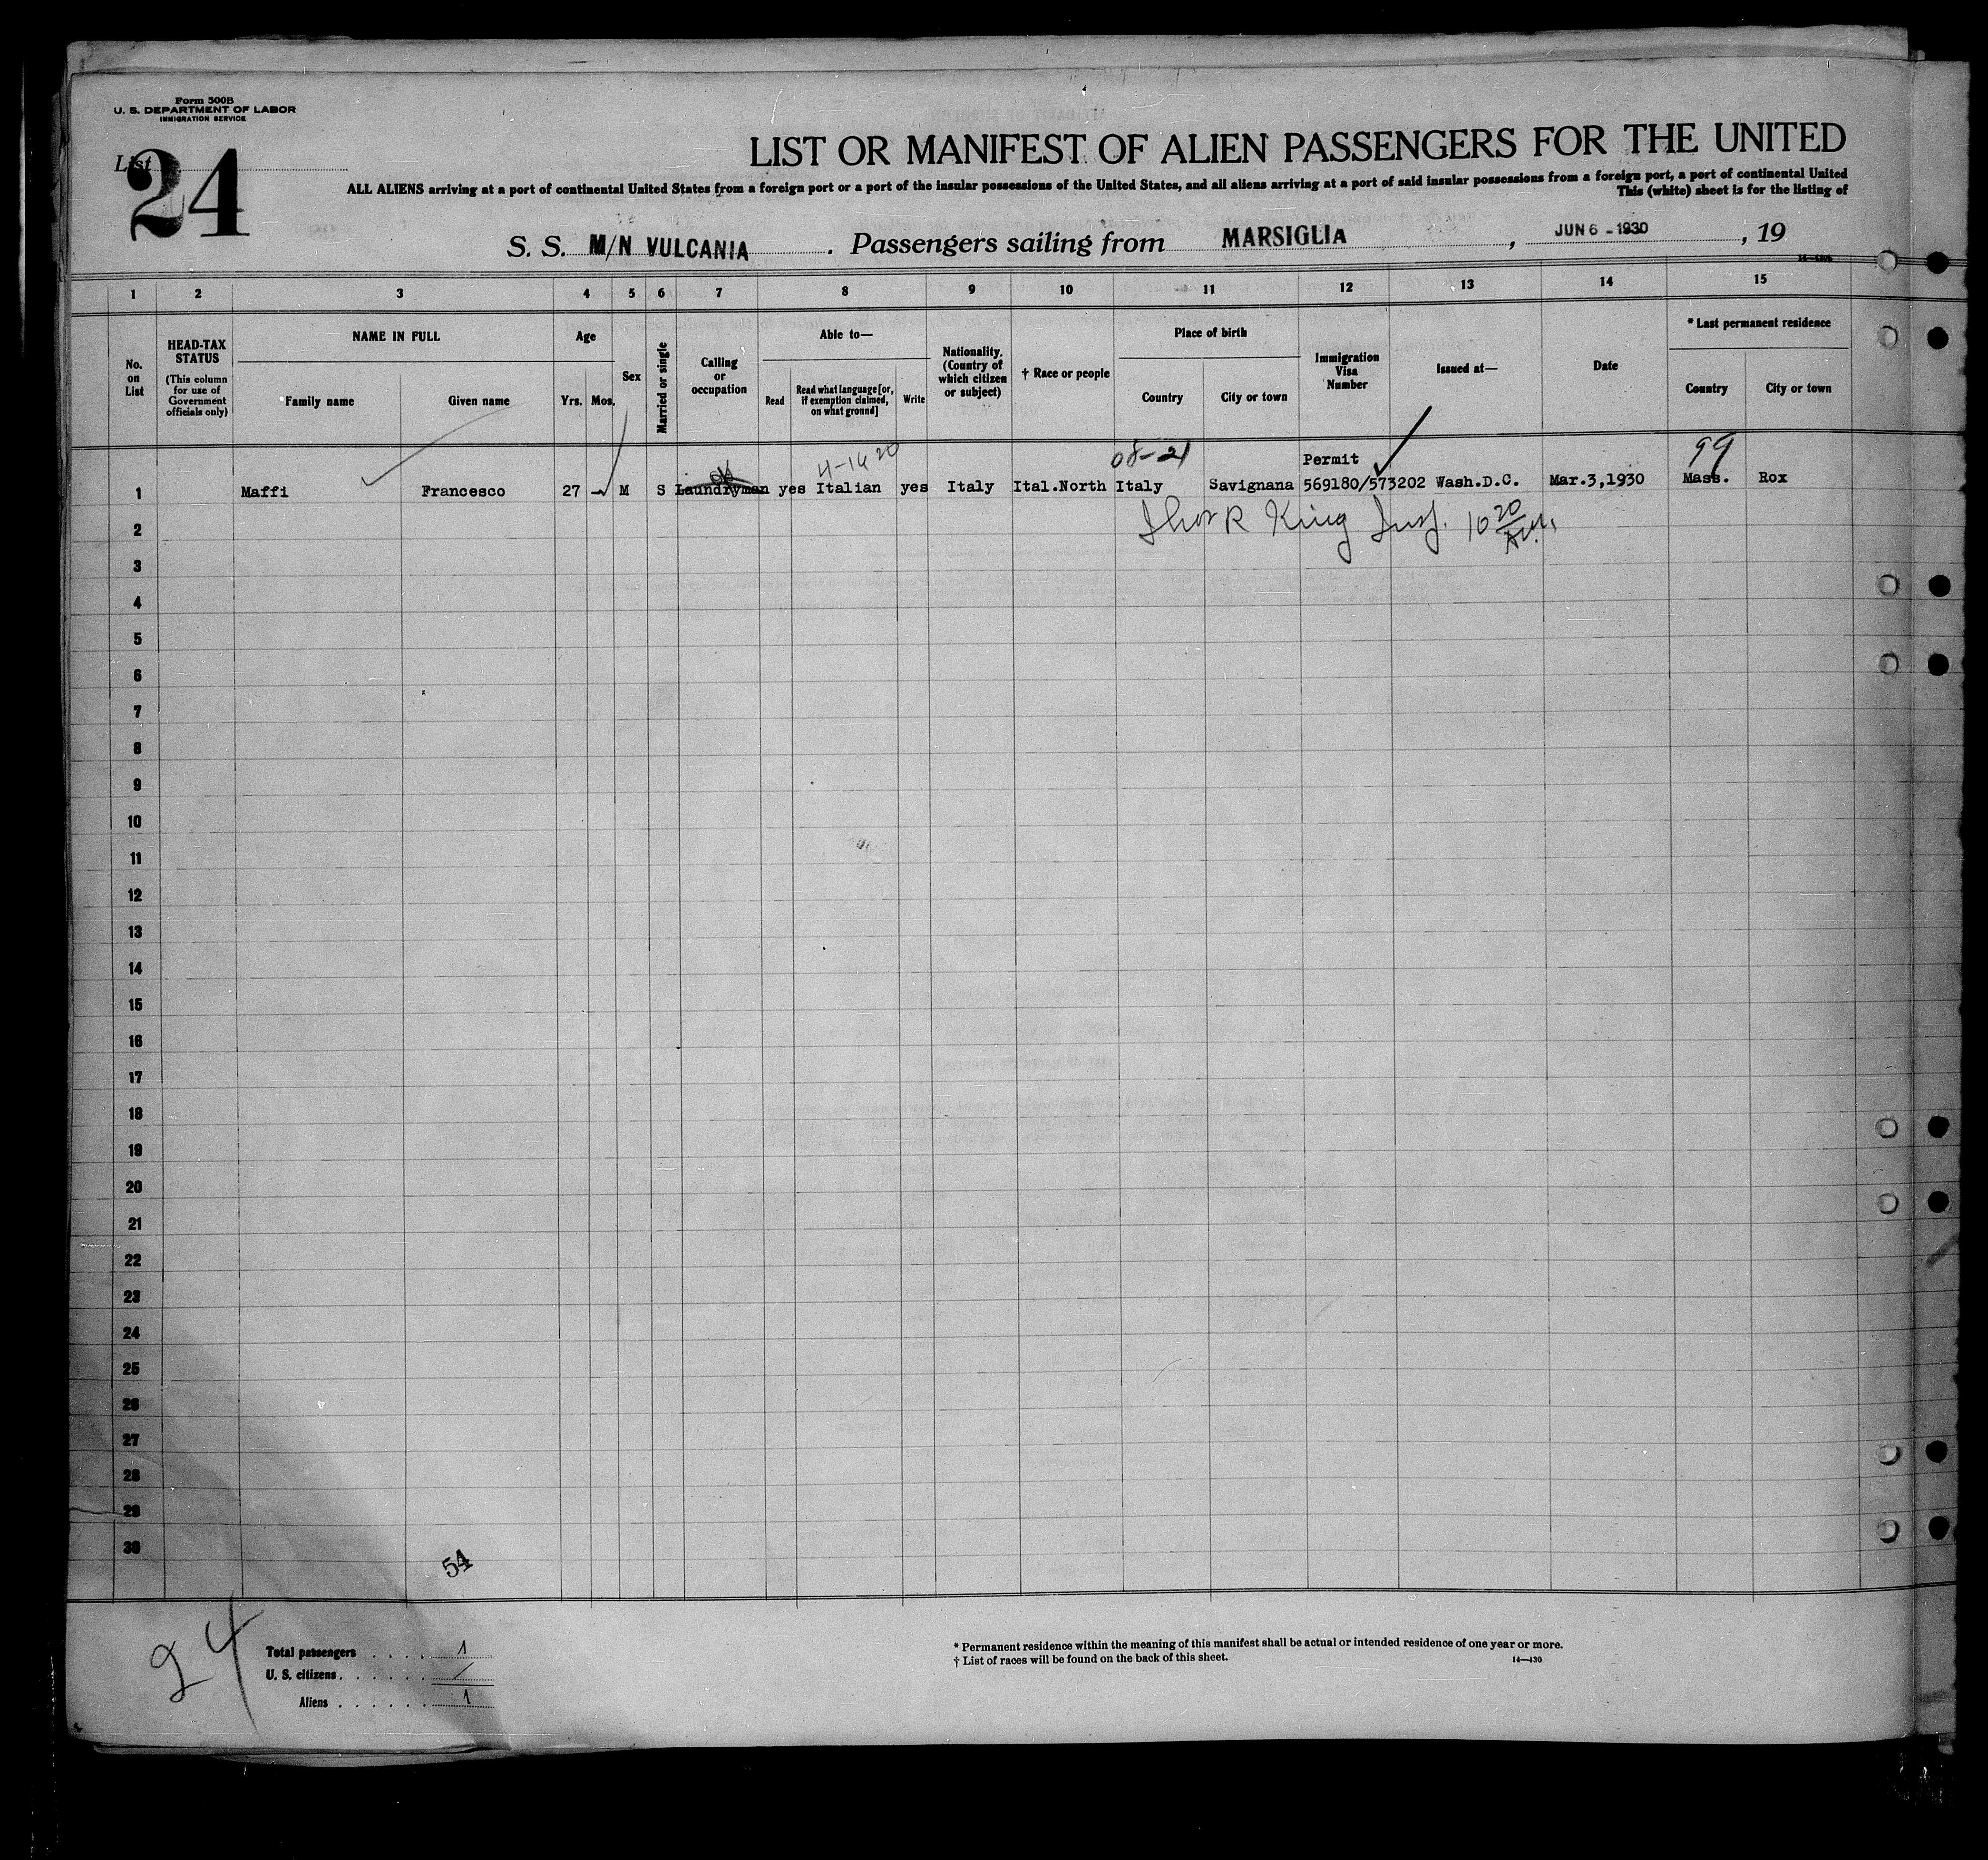 Form 500B
U. S. DEPARTMENT OF LABOR
IMMIGRATION SERVICE
List 24
LIST OR MANIFEST OF ALIEN PASSENGERS FOR THE UNITED
ALL ALIENS arriving at a port of continental United States from a foreign port or a port of the insular possessions of the United States, and all aliens arriving at a port of said insular possessions from a foreign port, a port of continental United
This (white) sheet is for the listing of
S. S. M/N VULCANIA. Passengers sailing from MARSIGLIA, JUN 6 - 1930, 19
1 2 3 4 5 6 7 8 9 10 11 12 13 14 15
No. on List
HEAD-TAX STATUS
(This column for use of Government officials only)
NAME IN FULL
Family name Given name
Age
Yrs. Mos.
Sex
Married or single
Calling or occupation
Able to—
Read
Read what language [or, if exemption claimed, on what ground]
Write
Nationality. (Country of which citizen or subject)
† Race or people
Place of birth
Country City or town
Immigration Visa Number
Issued at—
Date
* Last permanent residence
Country City or town
4-1420 08-21 Permit 99
1 Maffi Francesco 27 - M S Laundryman yes Italian yes Italy Ital.North Italy Savignana 569180/573202 Wash.D.C. Mar.3,1930 Mass. Rox
2 R King 10 20
3
4
5
6
7
8
9
10
11
12
13
14
15
16
17
18
19
20
21
22
23
24
25
26
27
28
29
30
54
24
Total passengers . . . . 1
U. S. citizens . . . . . /
Aliens . . . . . . 1
* Permanent residence within the meaning of this manifest shall be actual or intended residence of one year or more.
† List of races will be found on the back of this sheet.
14—430